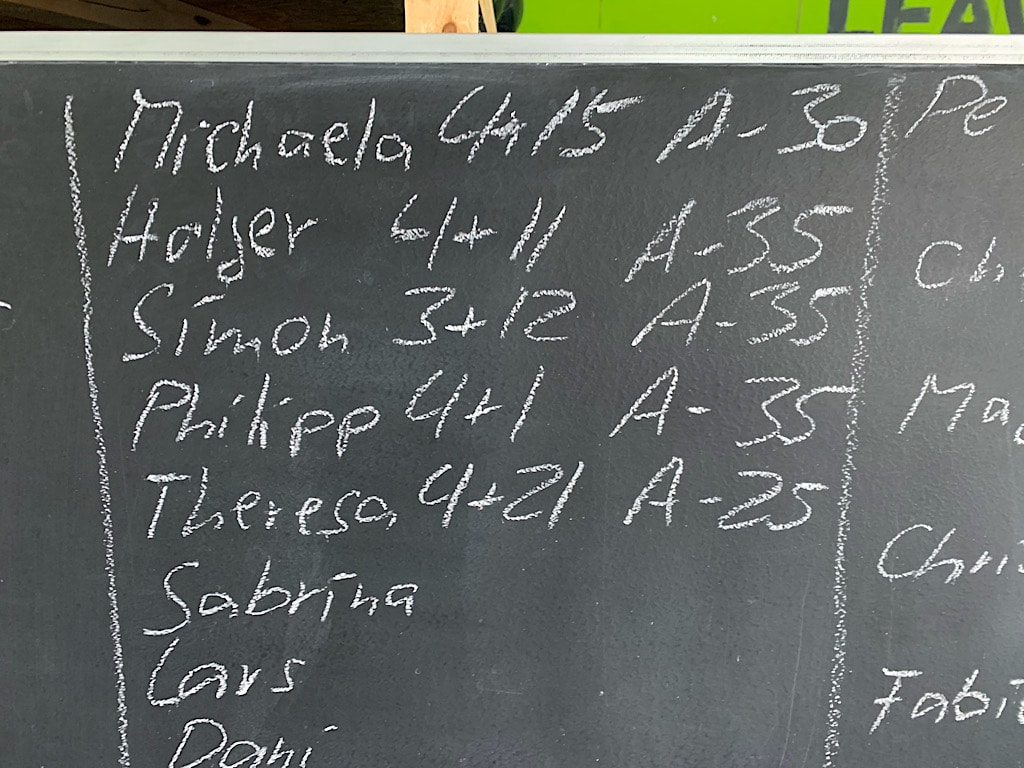 LEAV
Michaela 4+15 A-30
Holger 4+11 A-35
Simon 3+12 A-35
Philipp 4+1 A-35
Theresa 4+21 A-25
Sabrina
Lars
Dani
Pe
Ch
Ma
Chri
Fabi